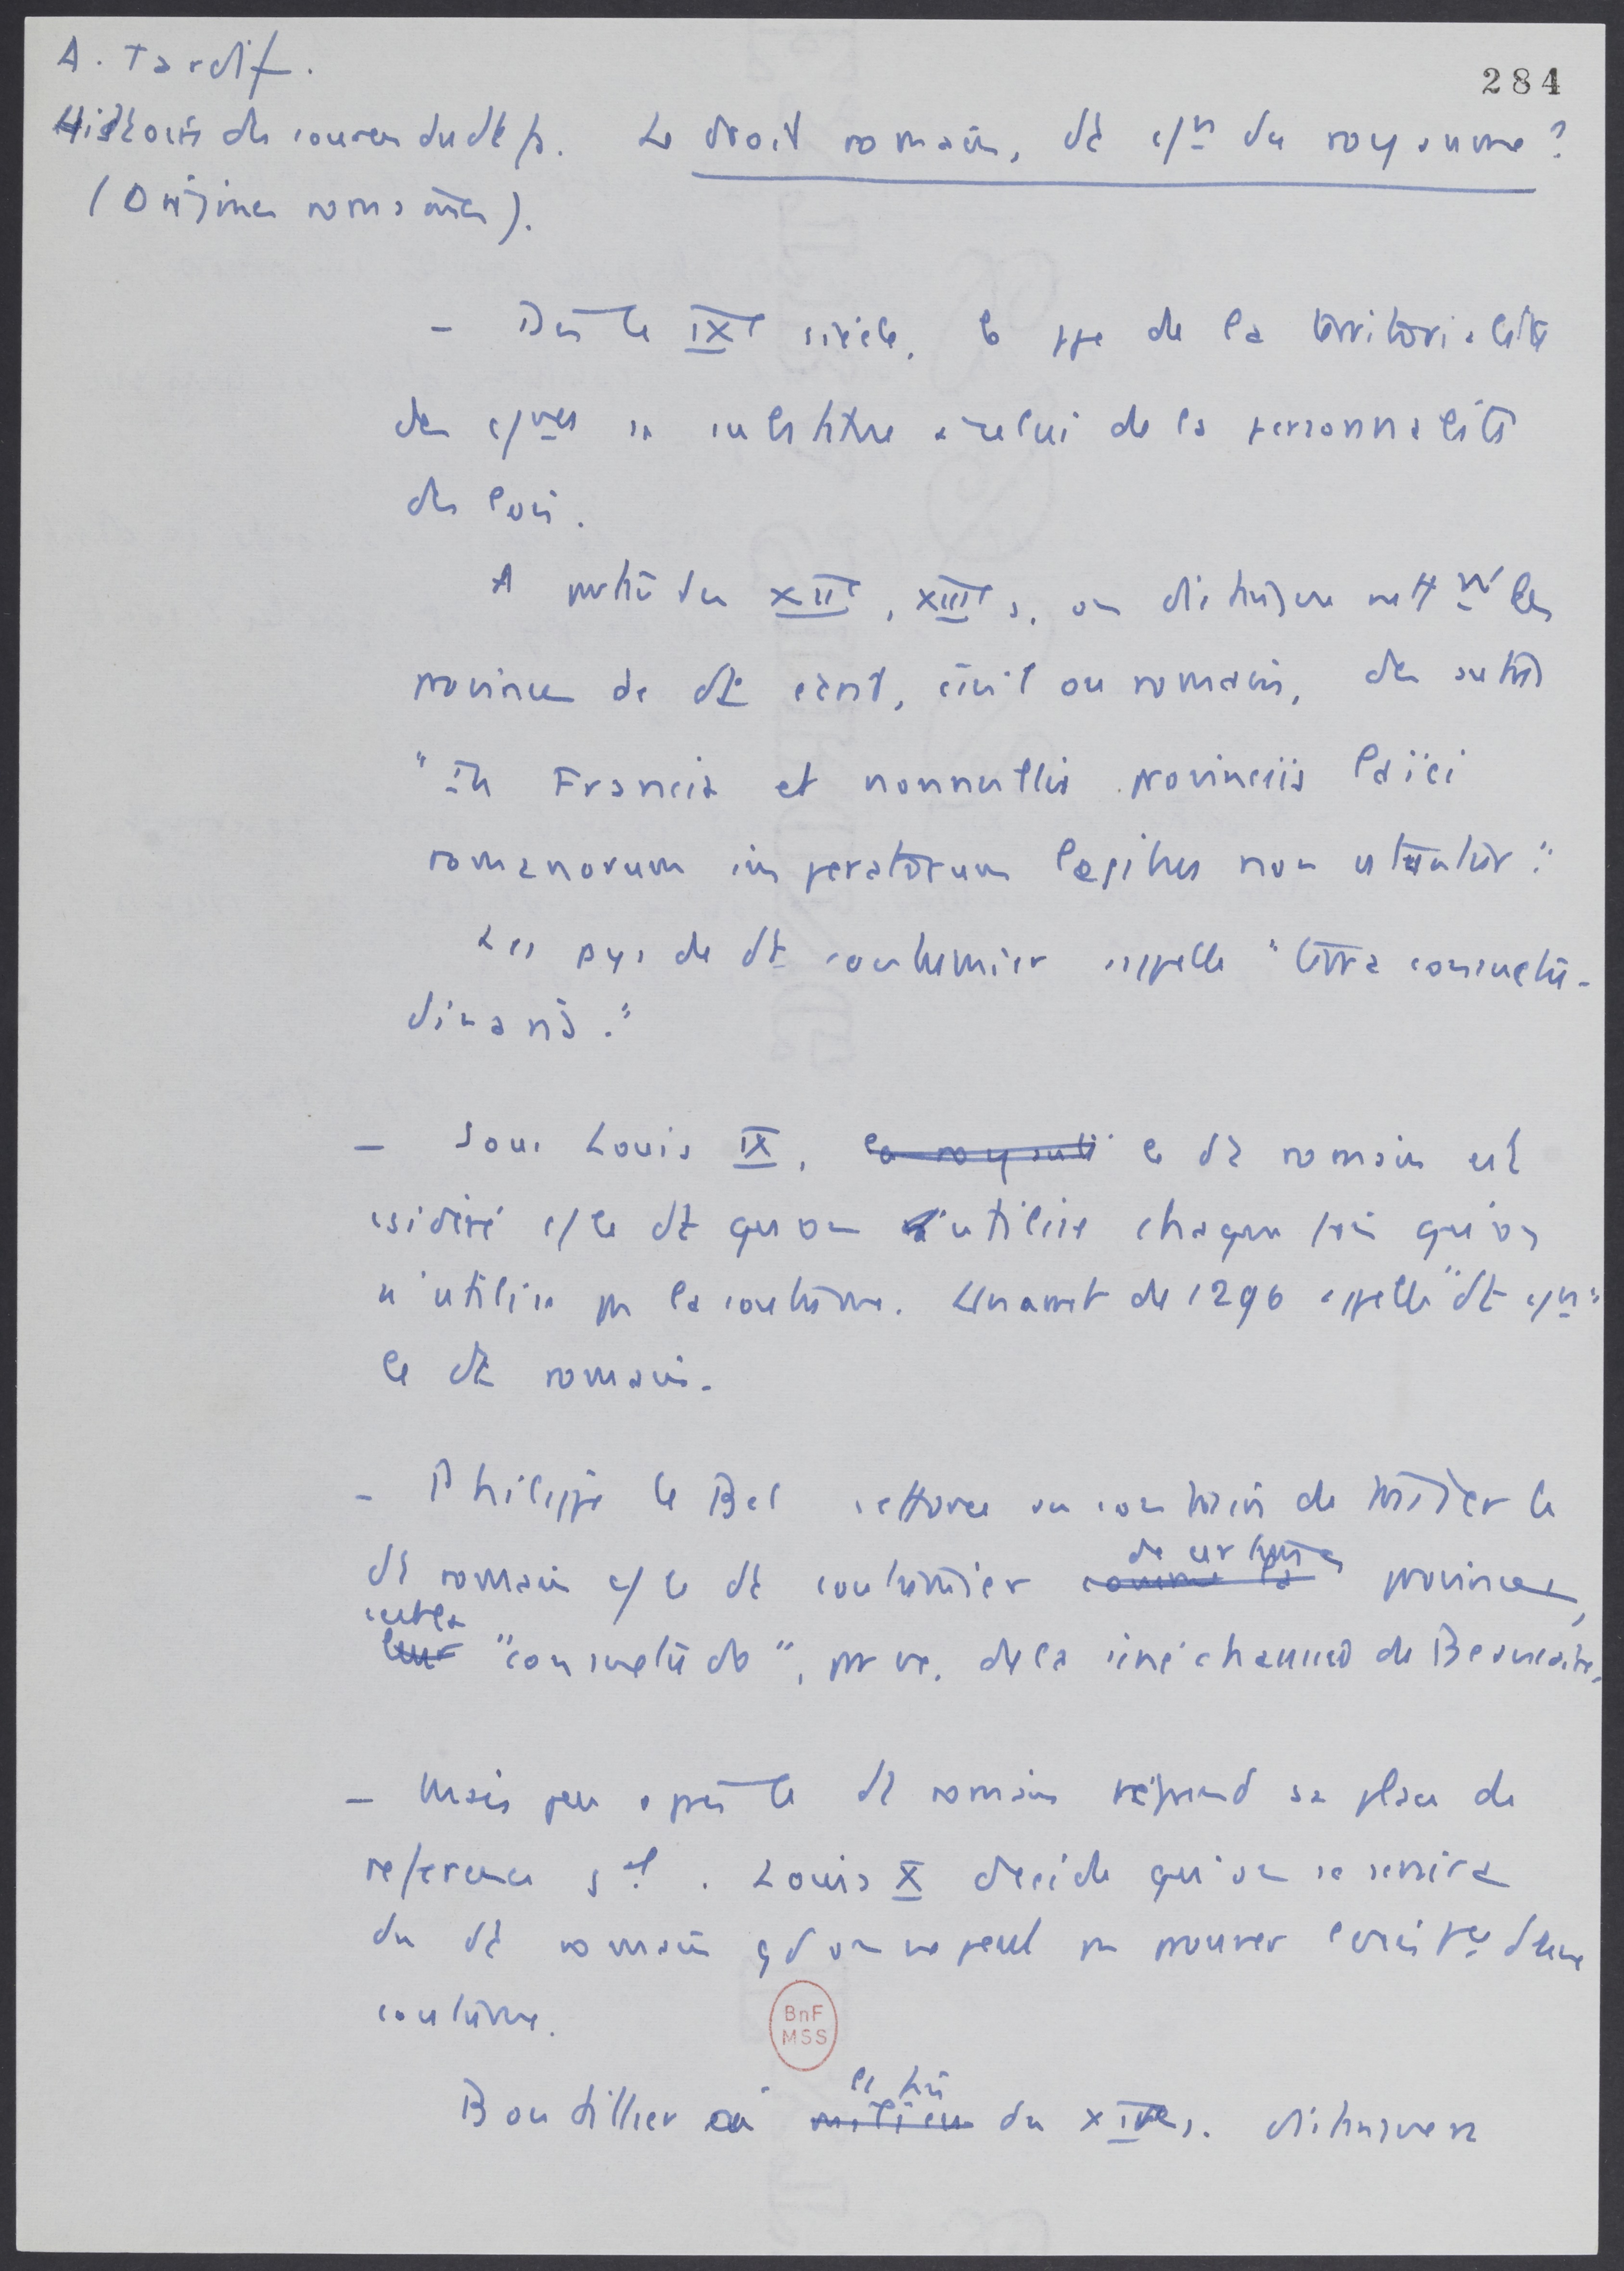 A. Tardif.
284
Histoire des sources du dt fs. Le droit romain, dt c/n du royaume ?
(Origines romaines).
- Dès le IXe siècle, le ppe de la territorialité
des c/mes se substitue à celui de la personnalité
des lois.
A partir du XIIe, XIIIe s. on distingue nettt les
provinces de dt écrit, civil ou romain, des autres
"In Francia et nonnullis provinciis laïci
romanorum imperatorum legibus non utuntur".
Les pays de dt coutumier appelle "terra consuetu-
dinaria."
- Sous Louis IX, la royauté le dt romain est
csidéré c/ le dt qu'on utilise chaque fois qu'on
n'utilise pas la coutume. Un arrêt de 1296 appelle "dt c/n"
le dt romain.
- Philippe le Bel s'efforce au contraire de traiter le
dt romain c/ le dt coutumier comme la de certaines provinces,
leur cette "consuetudo", par ex. de la sénéchaussée de Beaucaire.
- Mais peu après le dt romain reprend sa place de
référence gal. Louis X décide qu'on se servira
du dt romain qd on ne peut pas prouver l'existce d'une
coutume.
BnF
MSS
Boutillier à milieu la fin du XIVe s. distinguera